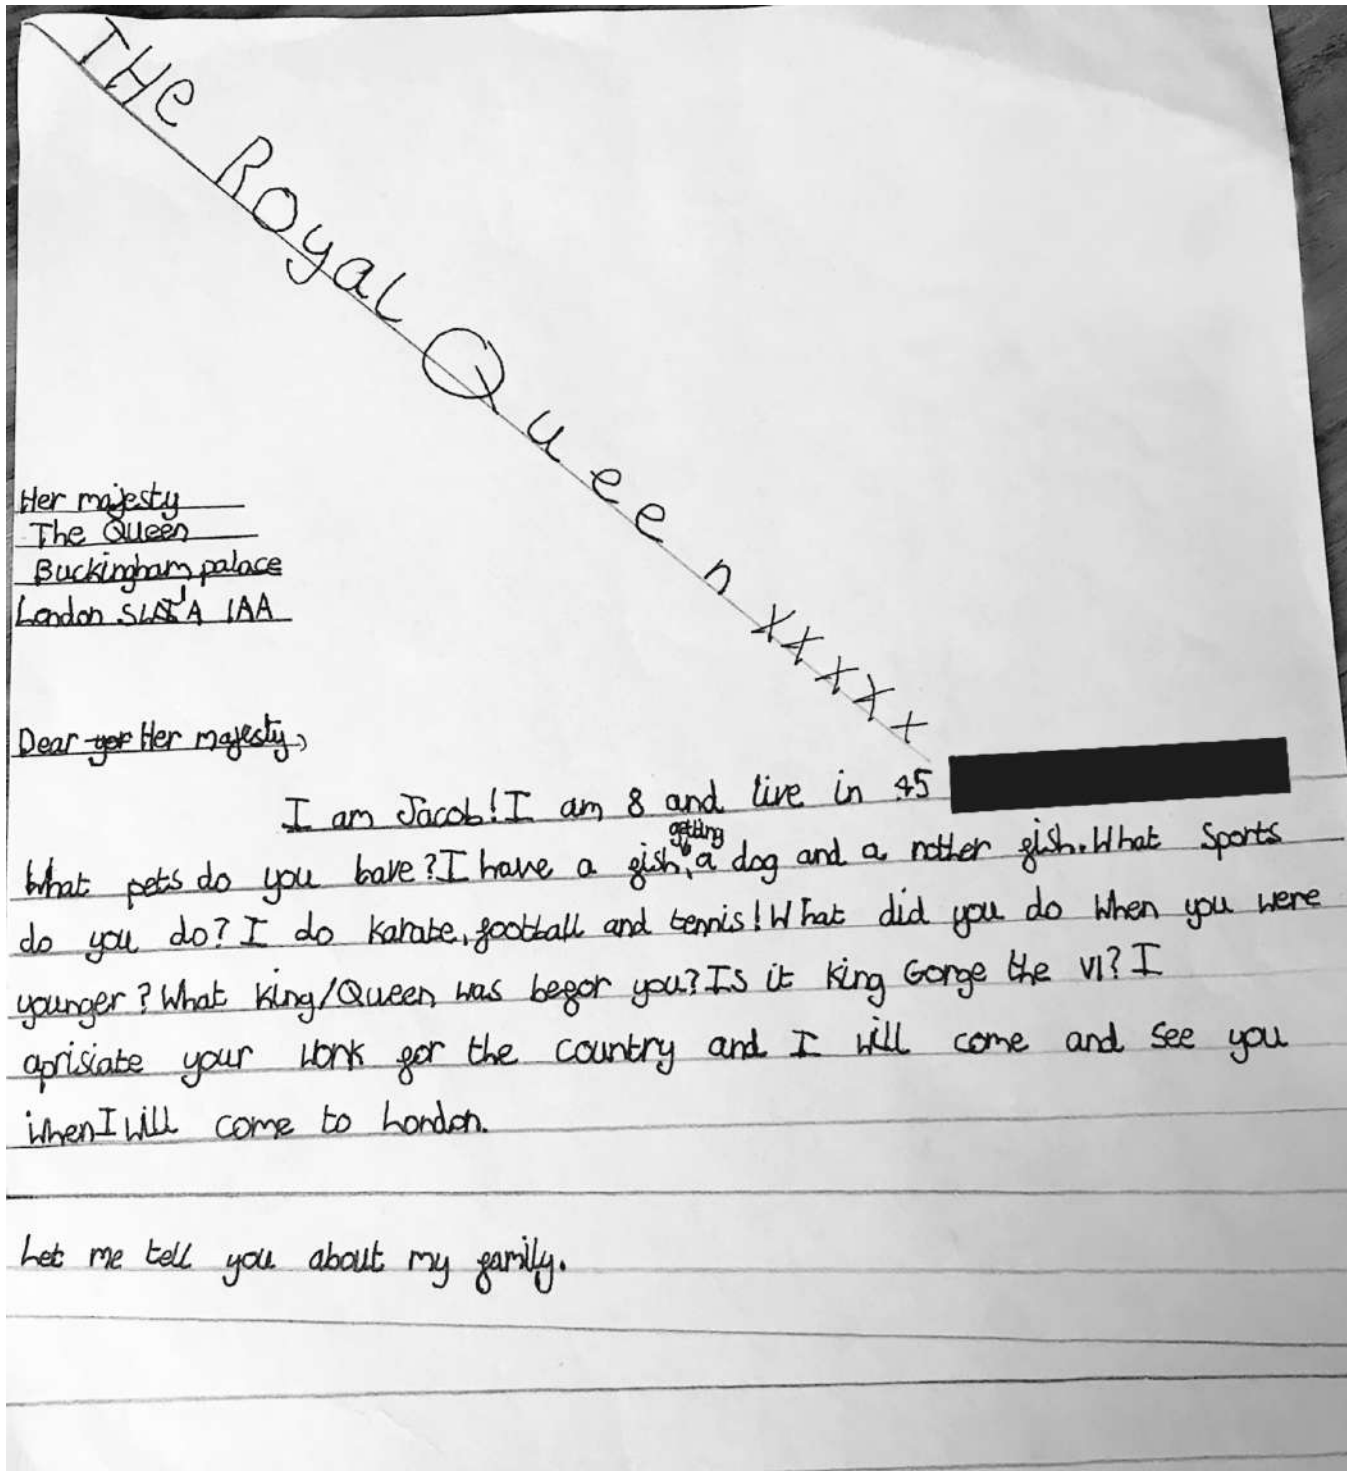 THe Royal Queen xxxxx
Her majesty
The Queen
Buckingham palace
London SW1A 1AA
Dear yor Her majesty,
I am Jacob! I am 8 and live in 45
What pets do you have? I have a fish, getting a dog and a nother fish. What sports
do you do? I do karate, football and tennis! What did you do when you were
younger? What king/Queen was befor you? Is it king Gorge the VI? I
aprisiate your work for the country and I will come and see you
when I will come to London.
Let me tell you about my family.